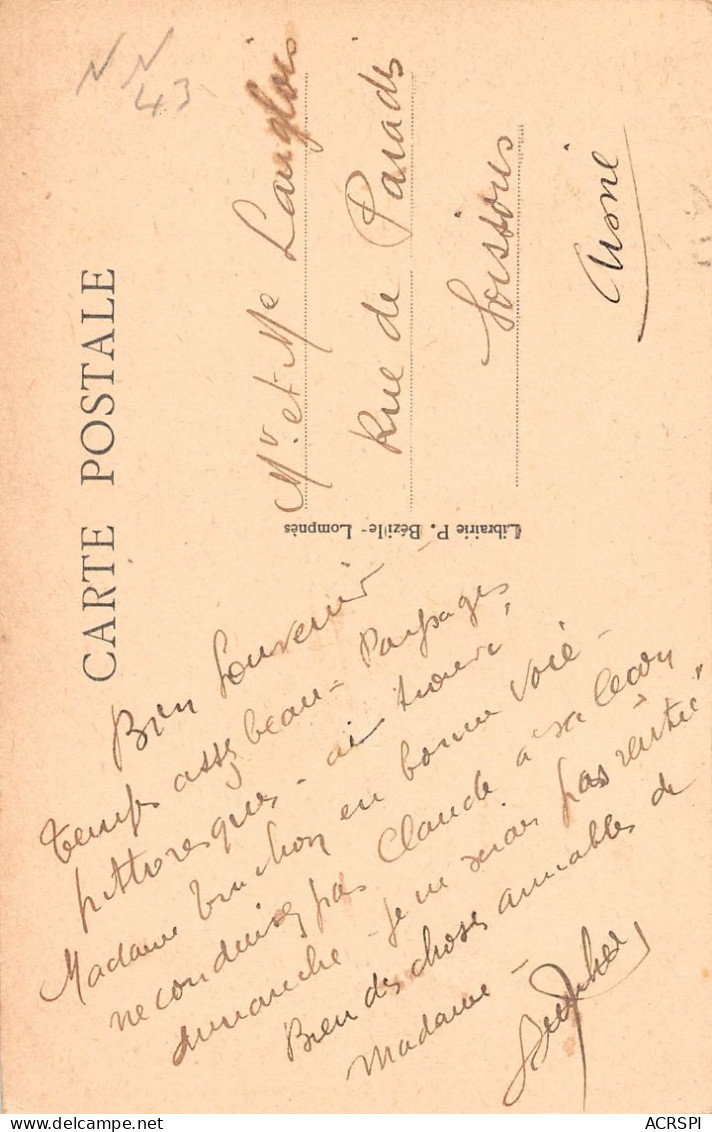 CARTE POSTALE
NN
43
Bien Souvenir -
temps assez beau - Paysages
pittoresques - ai trouvé,
Madame en bonne voie -
ne conduisez pas Claude à sa leçon
dimanche - je ne serai pas rentré"
Bien des choses aimables de
Madame -
Librairie P. Bézille - Lompnès
Mr. et Me Langlois
Rue de Panades
Soissons
Aisne
ACRSPI